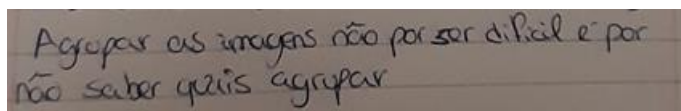 Agrupar as imagens não por ser dificil e por
não saber quais agrupar